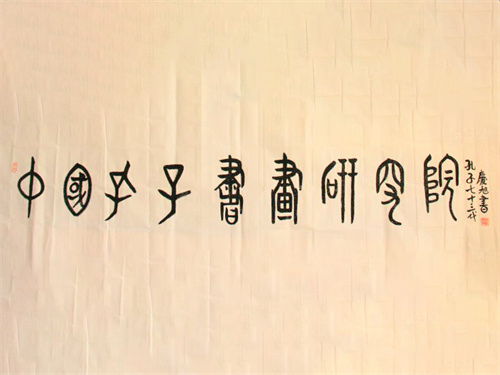 中國孔子書畫研究院
孔子七十三代
慶旭書